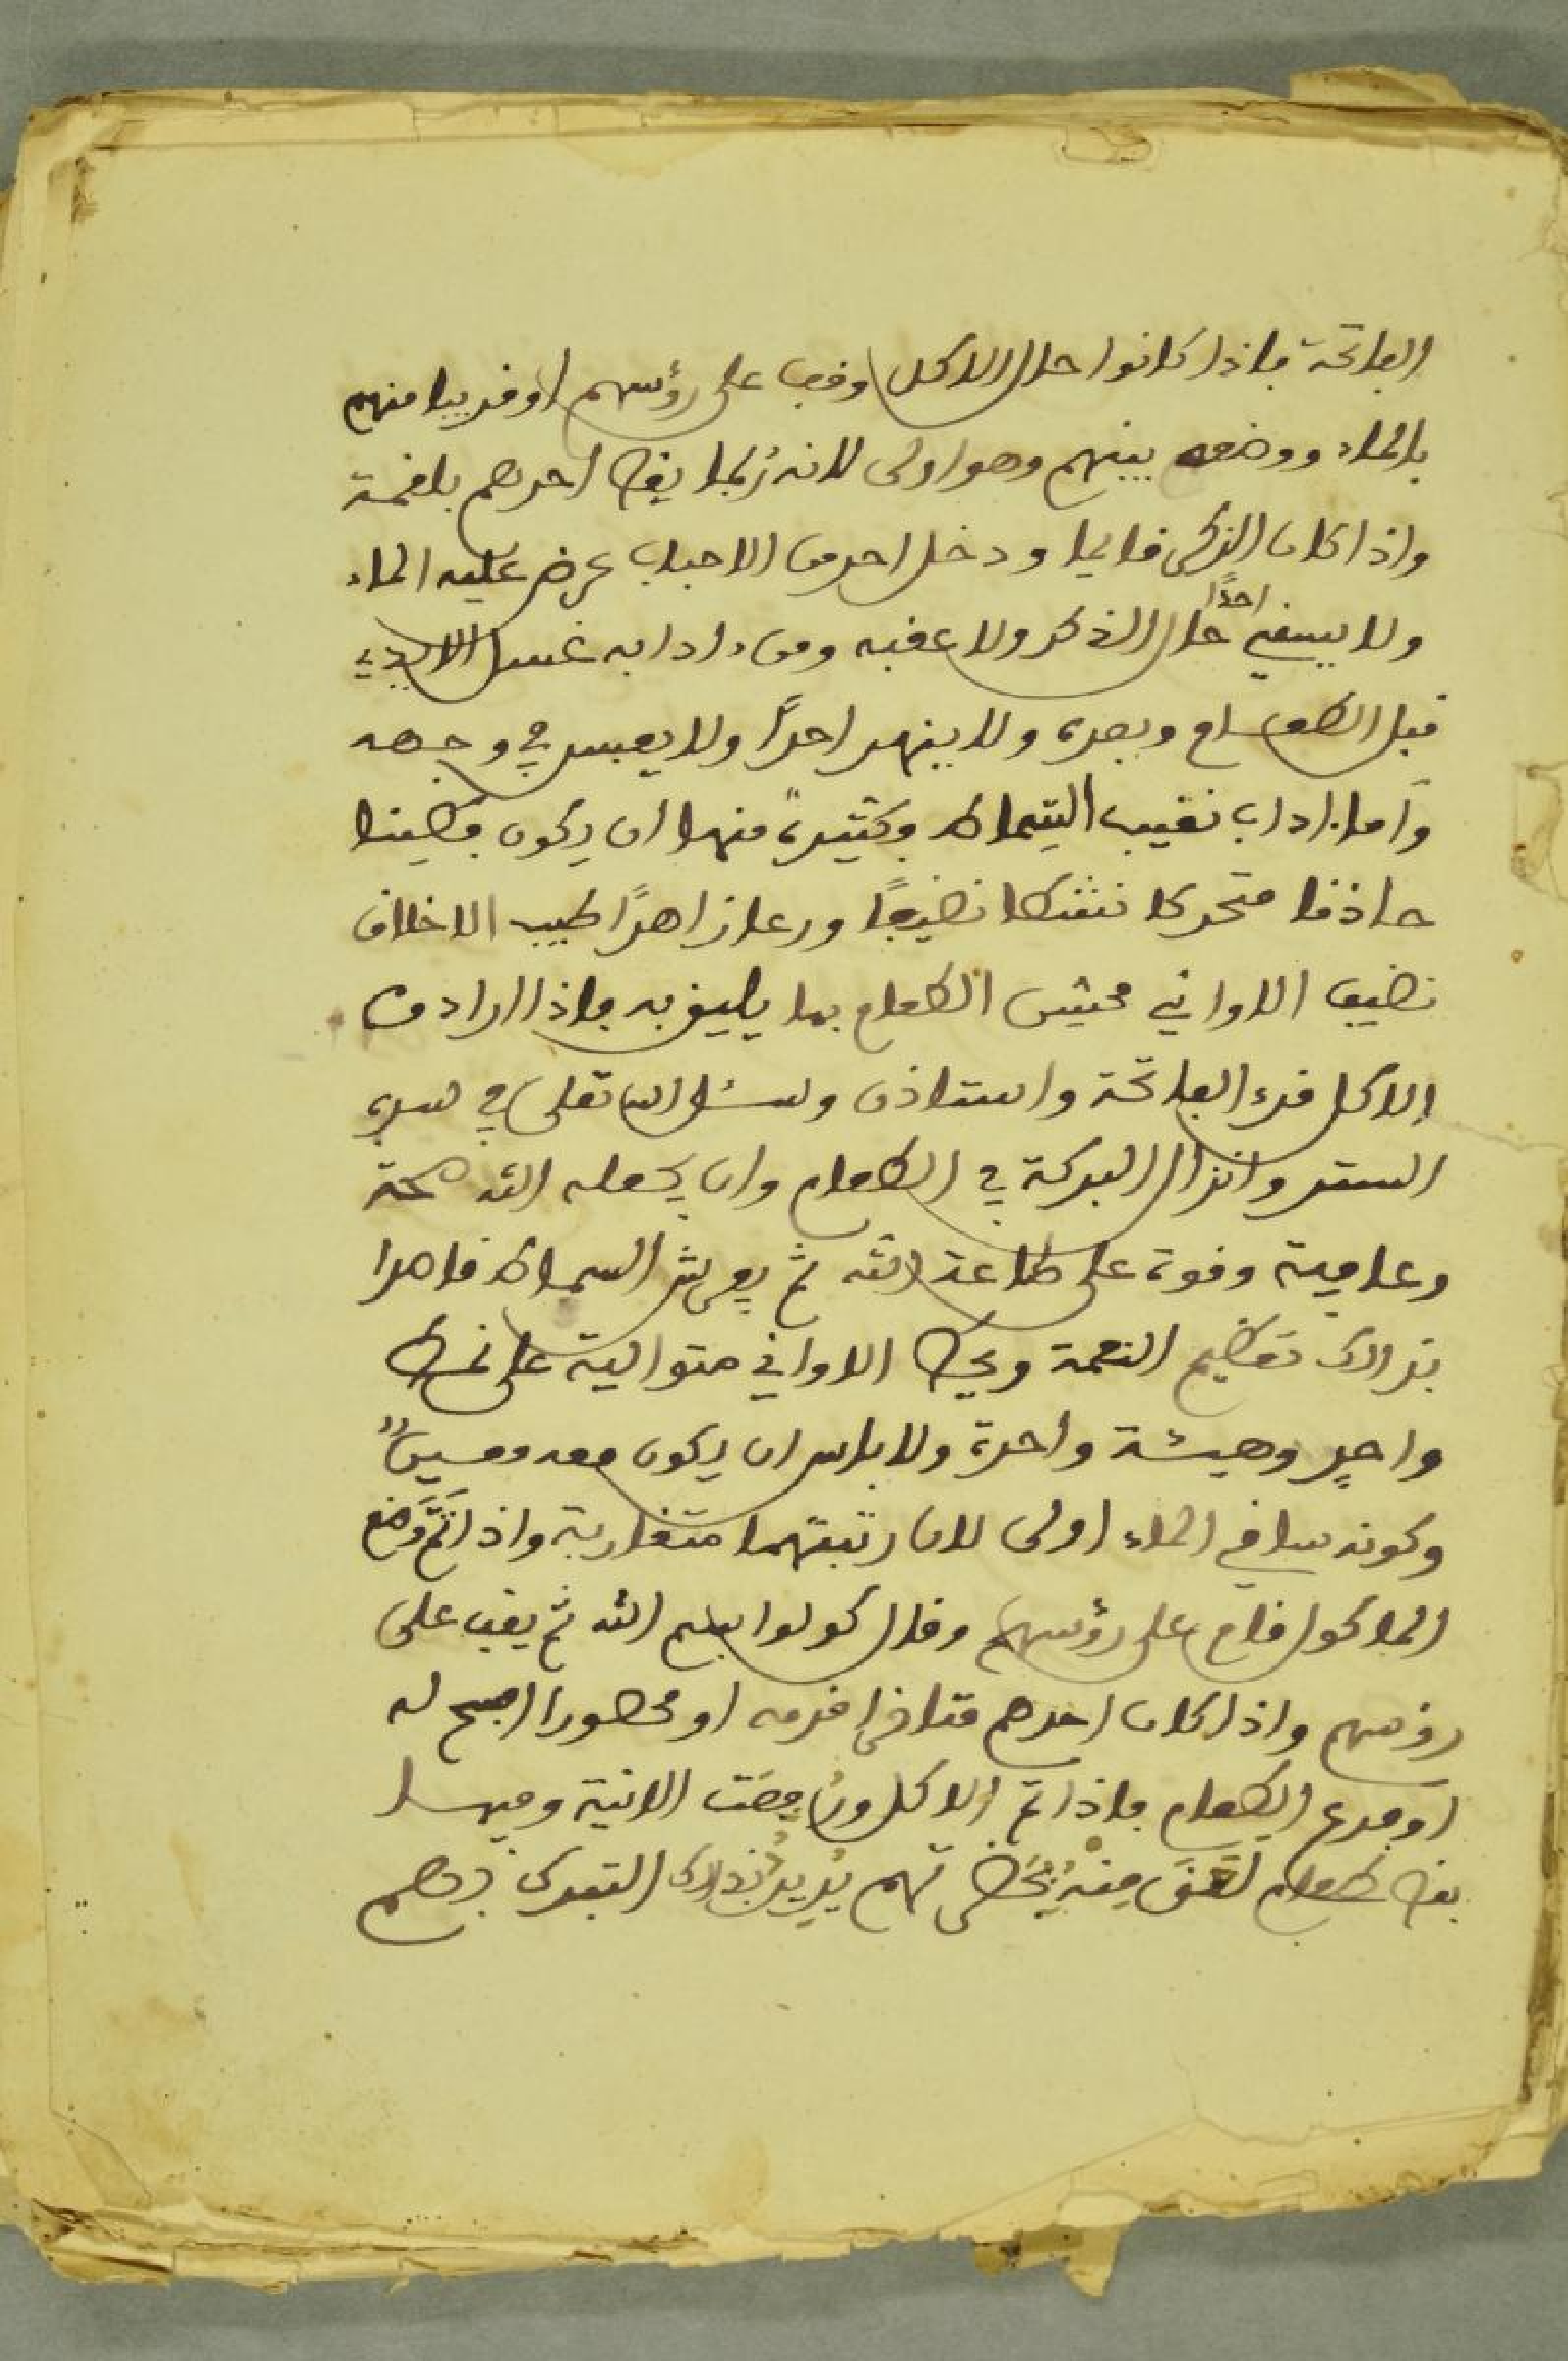 الفاتحة فاذا كانوا حال الاكل وقف على رؤسهم او قريبا منهم
بالماء ووضعه بينهم وهو اولى لانه ربما يغط احدهم بلقمة
واذا كان الذكر قايما ودخل احد من الاحباب عرض عليه الماء
ولا يسقي احدًا حال الذكر ولا عقبه ومن ءادابه غسل الايدي
قبل الطعام وبعده ولا ينهر احدًا ولا يعبس في وجهه
وأما ءاداب نقيب السماط فكثيرة منها ان يكون فطينا
حاذقا متحركا نشطا نضيفًا ورعا زاهدًا طيب الاخلاق
نضيف الاواني محيش الطعام بما يليق به فاذا اراد من
الاكل قرء الفاتحة واستاذن وسئل الله تعلى في سره
الستر وانزال البركة في الطعام وان يجعله الله صحة
وعافية وقوة على طاعة الله ثم يفرش السماط قاصدا
بذالك تعظيم النعمة ويحط الاواني متوالية على نمط
واحدٍ وهيئة واحدة ولا باس ان يكون معه معين
وكونه ساقي الماء اولى لان رتبتهما متقاربة واذا تَمَّ وَضع
الماكول قام على رؤسهم وقال كولوا بسم الله ثم يقف على
رؤسهم واذا كان احدهم متاخرا قدمه او محصورا افسح له
او فرغ الطعام فاذا تم الاكل ورُفِعَت الانية وفيها
بعض طعام لَعَقَ مِنْهُ بَعْضُهم يُرِيدُ بذالك التبرك فهم